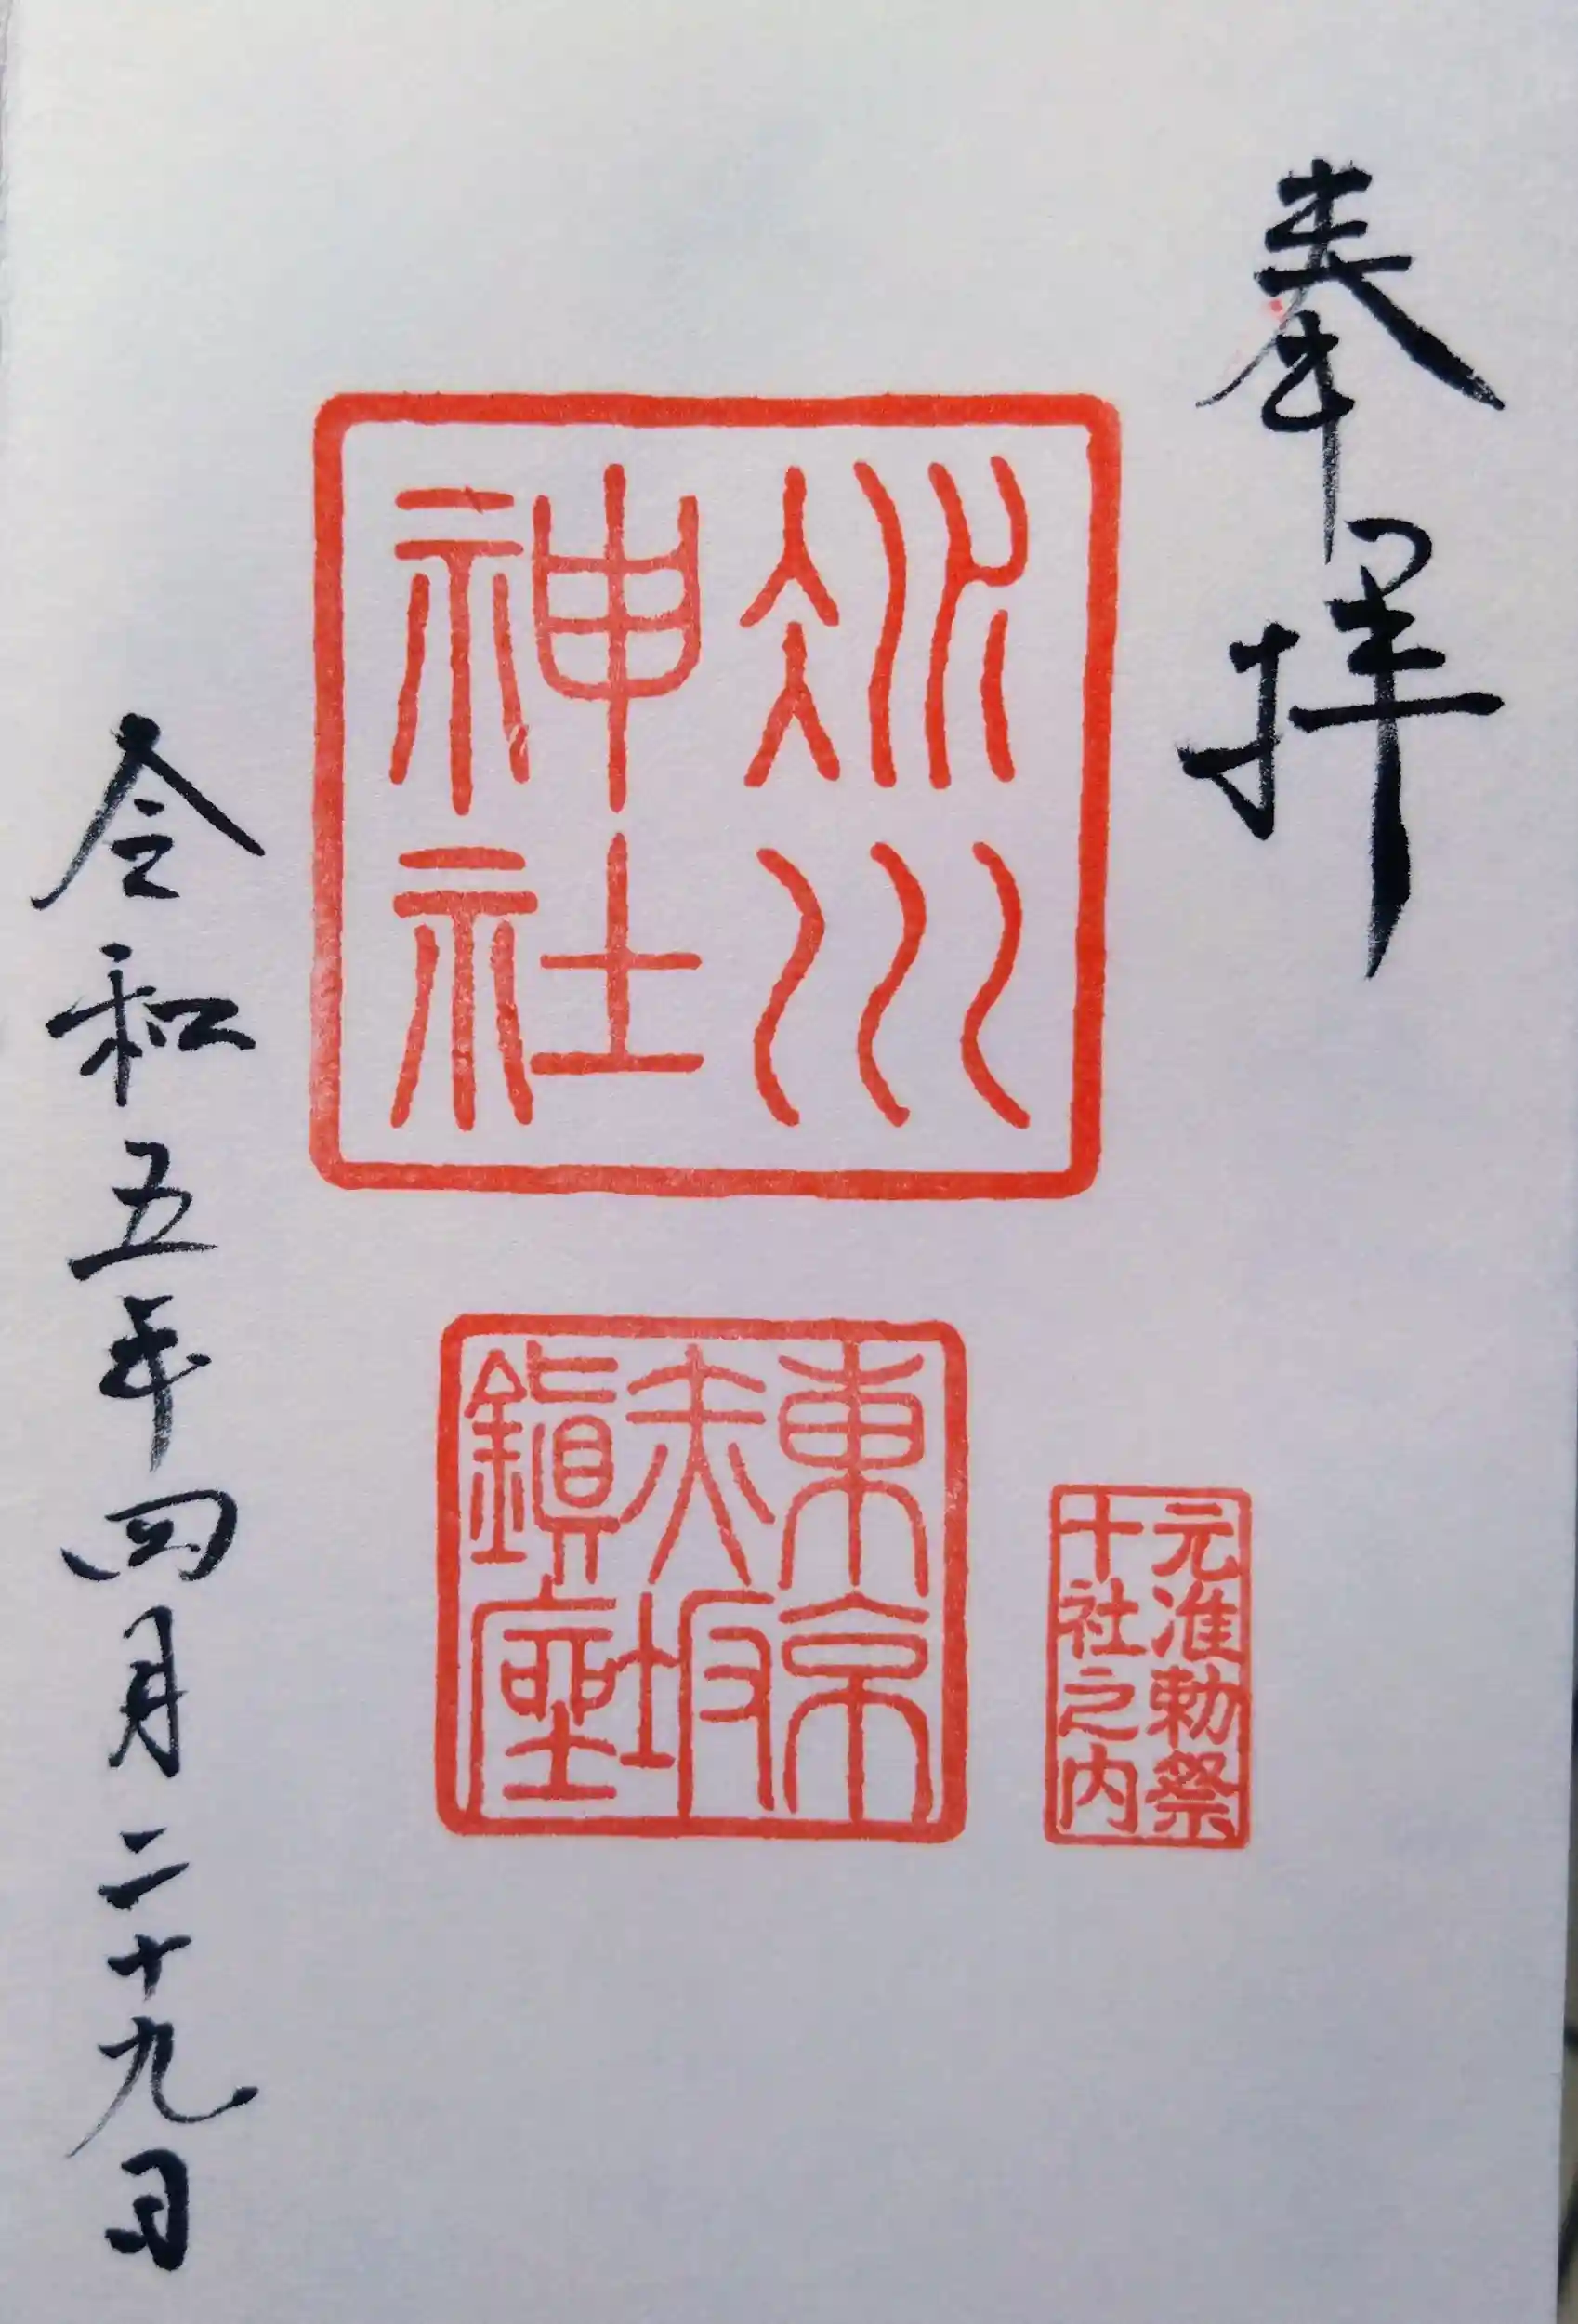 奉拝
氷川
神社
東京
赤坂
鎮座
元准勅祭
十社之内
令和五年四月二十九日